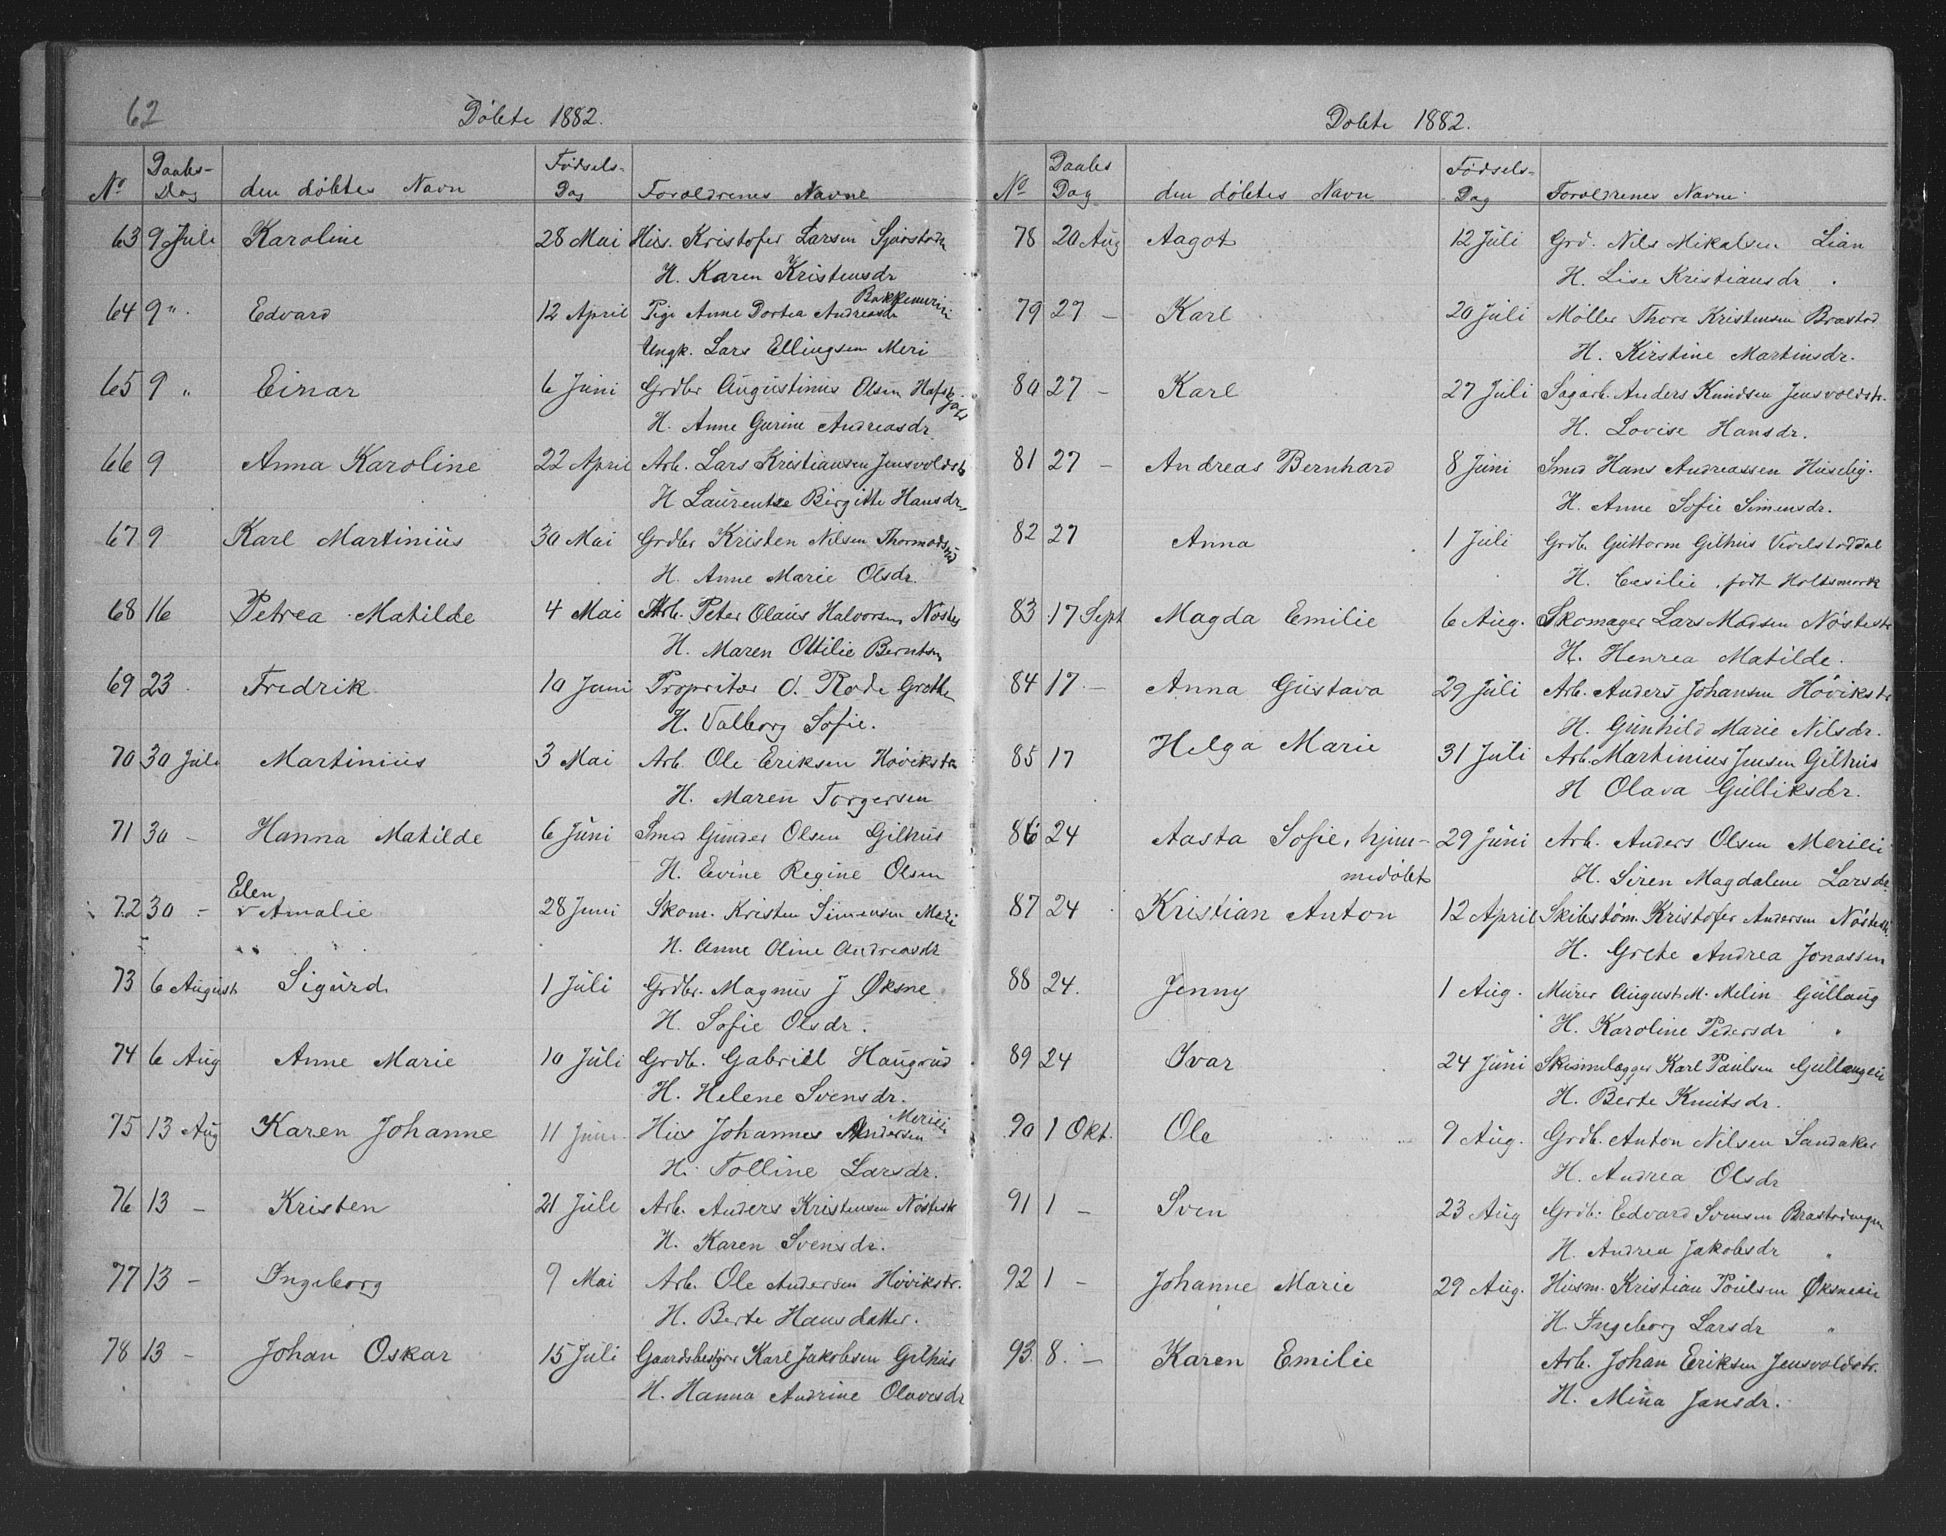 62
Døbte 1882.
No Daabs-Dag den døbtes Navn Fødsels-Dag Forældrenes Navne
63 9 Juli Karoline 28 Mai Hus. Kristofer Larsen
H. Karen Kristensdr
64 9 " Edvard 12 April Pige Anne Dortea Andreasdr
Ungk. Lars Ellingsen Meri
65 9 " Einar 6 Juni Grdbr Augustinus Olsen
H. Anne Gurine Andreasdr.
66 9 Anna Karoline 22 April Arb. Lars Kristiansen Jensvoldstr
H Laurentze Birgitte Hansdr
67 9 Karl Martinius 30 Mai Grdbr Kristen Nilsen Thormodsrud
H. Anne Marie Olsdr.
68 16 Petrea Matilde 4 Mai Arb. Peter Olaus Halvorsen Nøstes
H. Maren Ottilie Berntsen
69 23 Fredrik 10 Juni Propritær O. Rode Grothe
H. Valborg Sofie.
70 30 Juli Martinius 3 Mai Arb. Ole Eriksen Høvikstr
H. Maren Torgersen
71 30 - Hanna Matilde 6 Juni Smed Gunder Olsen Gilhus
H. Evine Regine Olsen
72 30 - Elen Amalie 28 Juni Skom. Kristen Simensen Meri
H. Anne Oline Andreasdr
73 6 August Sigurd 1 Juli Grdbr. Magnus J Øksne
H. Sofie Olsdr.
74 6 Aug Anne Marie 10 Juli Grdb. Gabriell Haugrud
H. Helene Svensdr.
75 13 Aug Karen Johanne 11 Juni Hus Johannes Andersen Meriei
H. Tolline Larsdr.
76 13 - Kristen 21 Juli Arb. Anders Kristensen Nøstestr
H. Karen Svensdr.
77 13 - Ingeborg 9 Mai Arb. Ole Andersen Høvikstr.
H. Berte Hansdatter.
78 13 - Johan Oskar 15 Juli Gaardsbestyrer Karl Jakobsen Gilhus
H. Hanna Andrine Olavesdr
Døbte 1882.
No Daabs Dag den døbtes Navn Fødsels-Dag Forældrenes Navne
78 20 Aug Aagot 12 Juli Grd. Nils Mikalsen Lian
H. Lise Kristiansdr "
79 27 - Karl 20 Juli Møller Thore Kristensen Brastad
H. Kirstine Martinsdr.
80 27 - Karl 27 Juli Sagarb. Anders Knudsen Jensvoldstr.
H. Lovise Hansdr.
81 27 - Andreas Bernhard 8 Juni Smed Hans Andreassen Huseby.
H. Anne Sofie Simensdr.
82 27 Anna 1 Juli Grdb. Guttorm Gilhus
H. Cecilie, født Holtsmark
83 17 Sept Magda Emilie 6 Aug. Skomager Lars Madsen Nøstestr
H. Henrea Matilde.
84 17 - Anna Gustava 29 Juli Arb. Anders Johansen Høvikstr
H. Gunhild Marie Nilsdr.
85 17 Helga Marie 31 Juli Arb. Martinius Jensen Gilhus
H Olava Gulliksdr.
86 24 Aasta Sofie, hjem- 29 Juni Arb. Anders Olsen Meriei
medøbt H. Siren Magdalene Larsdr
87 24 Kristian Anton 12 April Skibstøm. Kristofer Andersen Nøstestr.
H. Grete Andrea Jonassen
88 24. Jenny 1 Aug. Murer August. M. Melin Gullaug
H. Karoline Pedersdr "
89 24 Ivar 24 Juni Skinnelægger Karl Paulsen Gullaugeie
H. Berte Knutsdr.
90 1 Okt. Ole 9 Aug. Grdb. Anton Nilsen Sandaker
H. Andrea Olsdr
91 1 - Sven 23 Aug Grdb. Edvard Svensen Brastadengen
H. Andrea Jakobsdr "
92 1 - Johanne Marie 29 Aug. Husm. Kristian Poulsen Øksneeie
H. Ingeborg Larsdr "
93. 8. - Karen Emilie Arb. Johan Eriksen Jensvoldstr.
H. Mina Jansdr.